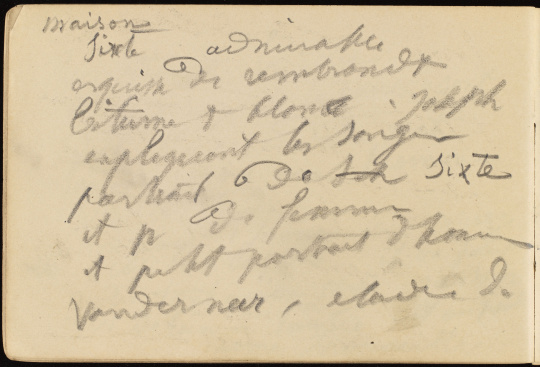 maison
Sixte admirable
esquisse de rembrandt
bitume & blanc. joseph
expliquant les songes
portrait de Sixte
et p de femme
et petit portrait d'homme
Vanderneer, de